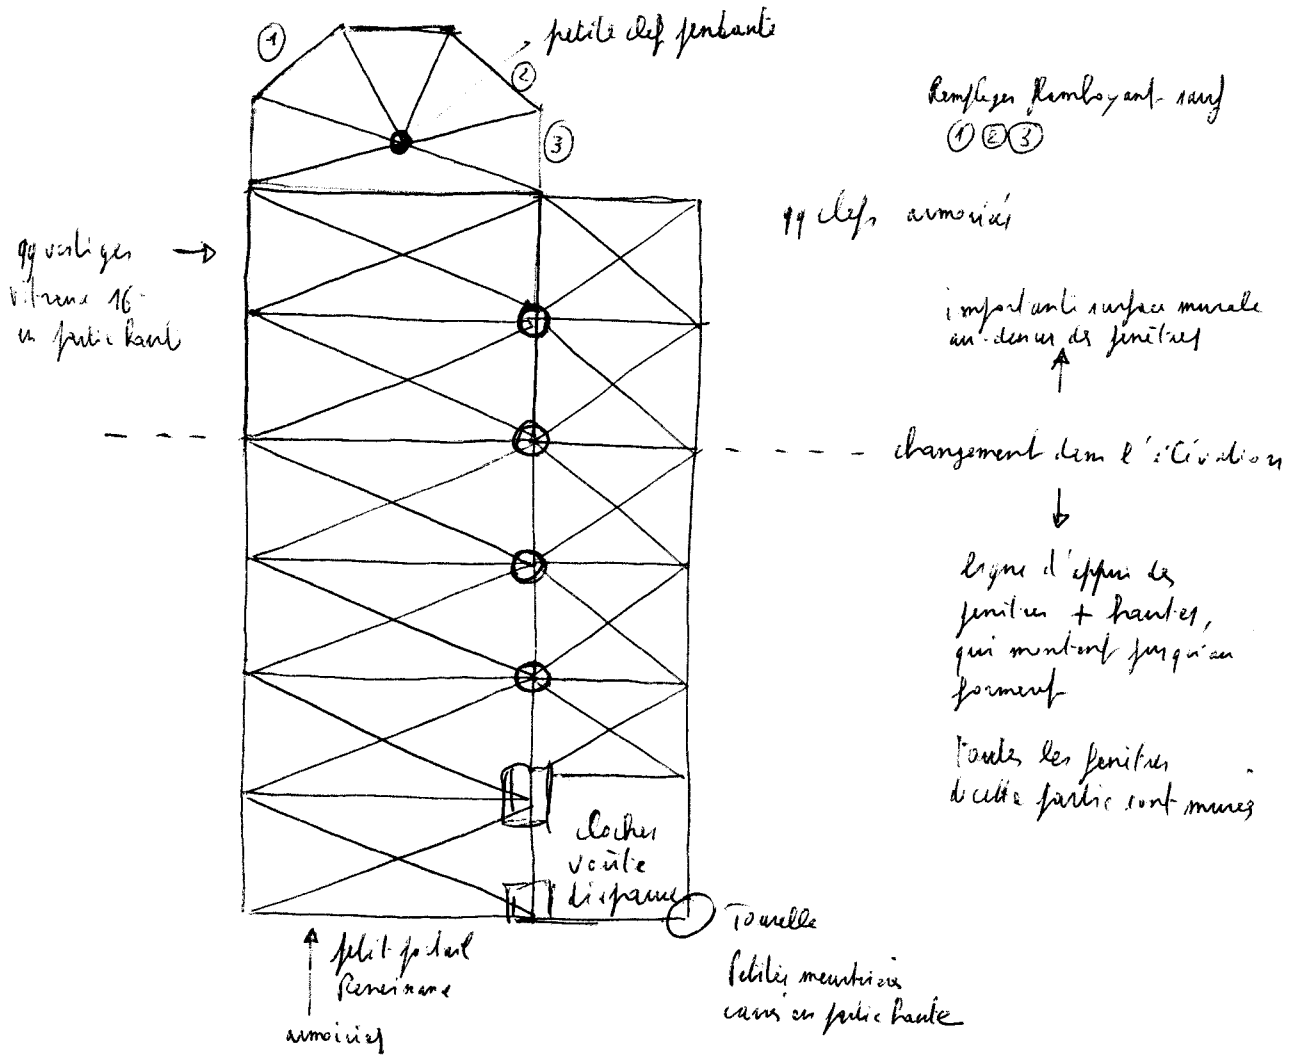 1
petite clef pendante
2
Remplages flamboyants sauf
1 2 3
3
qq clefs armoriées
qq vestiges
vitraux 16e
en partie haute
importante surface murale
au-dessus des fenêtres
changement dans l'élévation
ligne d'appui des
fenêtres + hautes,
qui montent jusqu'au
formeret
Toutes les fenêtres
de cette partie sont murées
clocher
voûte
disparue
Tourelle
petit portail
Renaissance
Petites meurtrières
carrées en partie haute
armoiries